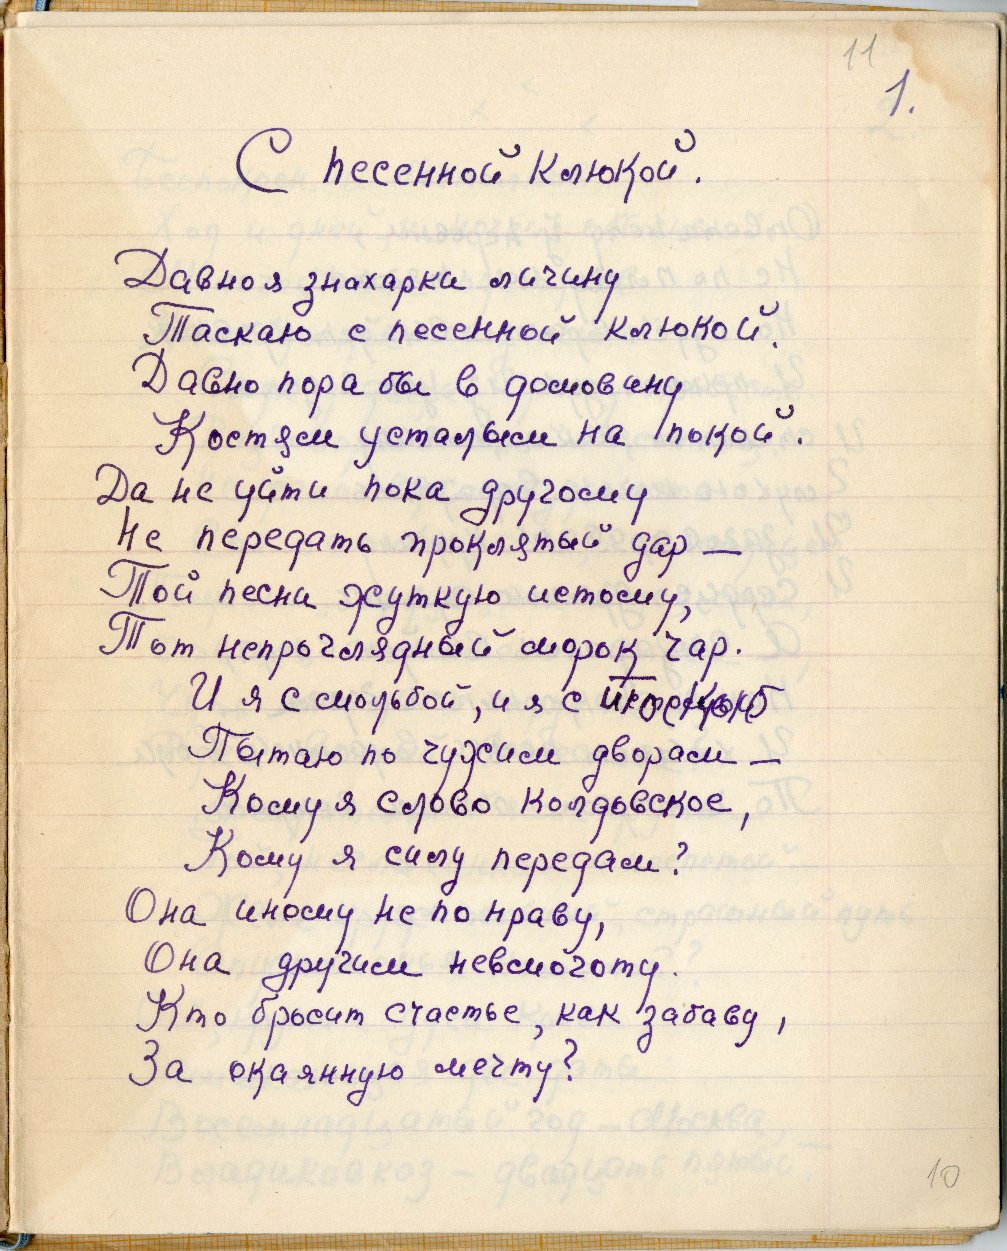 11
1.
С песенной клюкой.
Давно я знахарки личину
Таскаю с песенной клюкой.
Давно пора бы в домовину
Костям усталым на покой.
Да не уйти пока другому
Не передать проклятый дар —
Той песни жуткую истому,
Тот непроглядный морок чар.
И я с мольбой, и я с тоскою
Пытаю по чужим дворам —
Кому я слово колдовское,
Кому я силу передам?
Она иному не по нраву,
Она другим невмоготу.
Кто бросит счастье, как забаву,
За окаянную мечту?
10